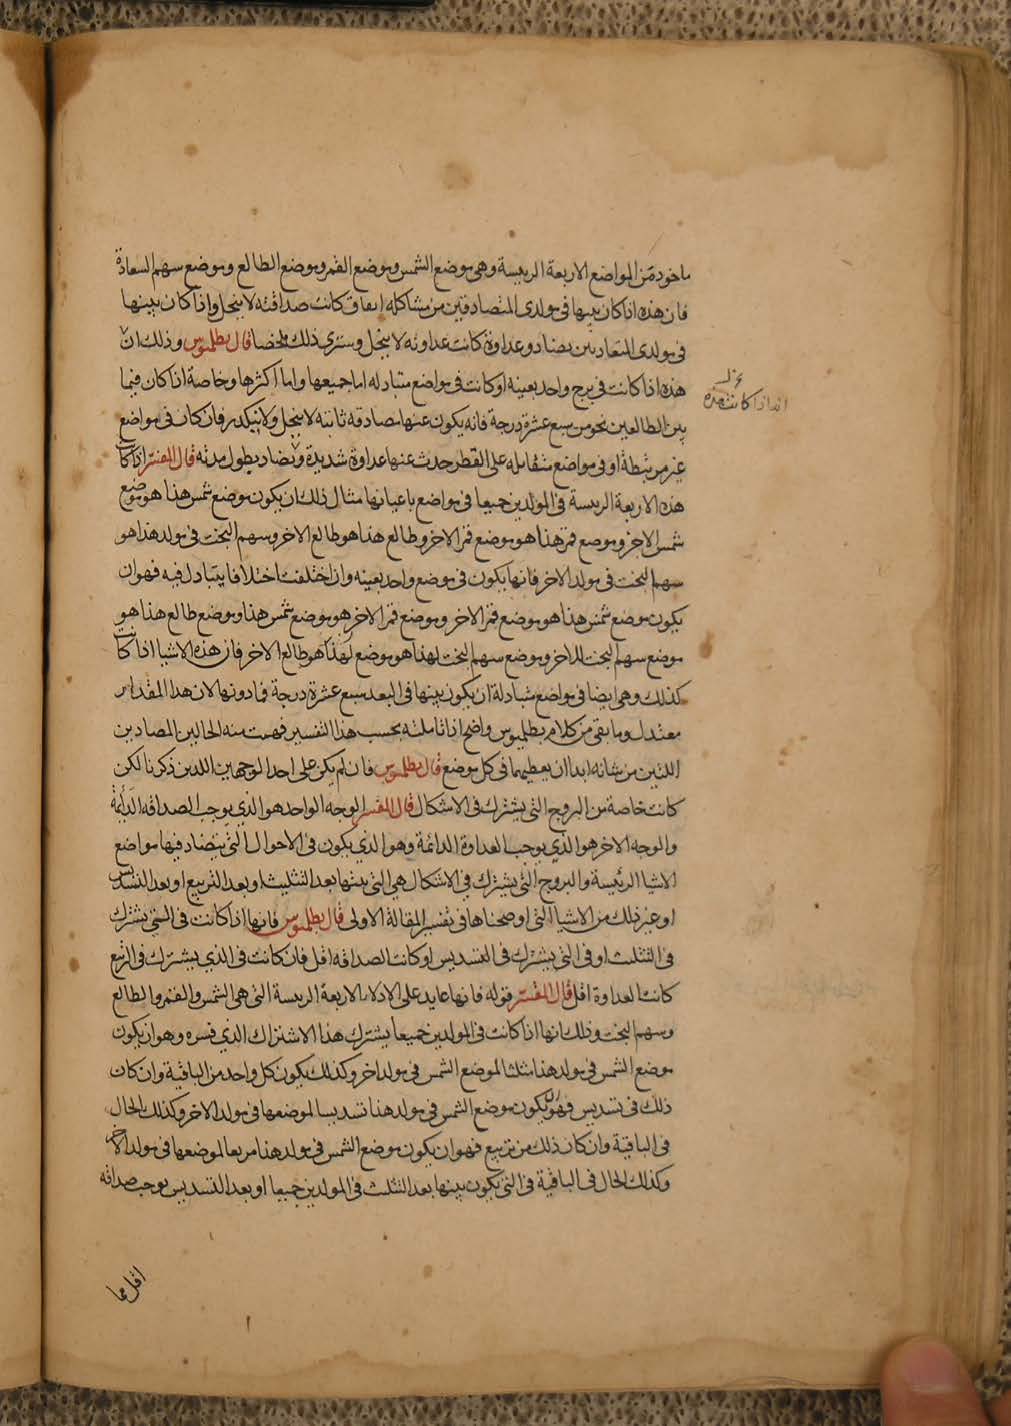 ماخوذة من المواضع الاربعة الريسة وهى موضع الشمس وموضع القمر وموضع الطالع وموضع سهم السعادة
فان هذه اذا كان بينها فى مولدى المتصادقين من مشاكله اتفاق كانت صداقته لا ينحل واذا كان بينها
فى مولدى المتعاديين تضاد وعداوة كانت عداوته لا ينحل وسترى ذلك ملخصا قال بطلميوس وذلك ان
هذه اذا كانت فى برج واحد بعينه او كانت فى مواضع متبادله اما جميعها واما اكثرها وخاصة اذا كان فيما
نخـ
انه اذا كانت هذه
بين الطالعين نحو من سبع عشرة درجة فانه يكون عنها مصادقه ثابته لا ينحل ولا يتكدر فان كان فى مواضع
غير مرتبطة او فى مواضع متقابله على القطر حدث عنها عداوة شديدة وتضاد يطول مدته قال المفسر اذا كانت
هذه الاربعة الريسة فى المولدين جميعا فى مواضع باعيانها مثال ذلك ان يكون موضع شمس هذا هو موضع
شمس الاخر وموضع قمر هذا هو موضع قمر الاخر وطالع هذا هو طالع الاخر وسهم البخت فى مولد هذا هو
سهم البخت فى مولد الاخر فانها يكون فى موضع واحد بعينه وان اختلفت اختلافا يتبادل فيه فهو ان
يكون موضع شمس هذا هو موضع قمر الاخر وموضع قمر الاخر هو موضع شمس هذا وموضع طالع هذا هو
موضع سهم البخت للاخر وموضع سهم البخت لهذا هو موضع لهذا هو طالع الاخر فان هذه الاشيا اذا كانت
كذلك وهى ايضا فى مواضع متبادلة ان يكون بينها فى البعد سبع عشرة درجة فما دونها لان هذا المقدار
معتدل وما بقى من كلام بطلميوس واضح اذا تاملته بحسب هذا التفسير فهمت منه الحالين المضادين
اللتين من شانه ابدا ان يعطيهما فى كل موضع قال بطلميوس فان لم يكن على احد الوجهين اللذين ذكرنا لكن
كانت خاصة من البروج التى يشترك فى الاشكال قال المفسر الوجه الواحد هو الذي يوجب الصداقه الدائمة
والوجه الاخر هو الذي يوجب العداوة الدائمة وهو الذي يكون فى الاحوال التى يتضاد فيها مواضع
الاشيا الرئيسة والبروج التى يشترك فى الاشكال هي التى بينها بعد التثليث او بعد التربيع او بعد التسديس
او غير ذلك من الاشيا التى اوضحناها فى تفسير المقالة الاولى قال بطلميوس فانها اذا كانت فى التى يشترك
فى التثليث او فى التى يشترك فى التسديس او كانت الصداقه اقل فان كانت فى الذي يشترك فى التربيع
كانت العداوة اقل قال المفسر قوله فانها عايد على الادلاء الاربعة الريسة التى هى الشمس والقمر والطالع
وسهم البخت وذلك انها اذا كانت فى المولدين جميعا يشترك هذا الاشتراك الذي فسره وهو ان يكون
موضع الشمس فى مولد هذا مثلثا لموضع الشمس فى مولد اخر وكذلك يكون كل واحد من الباقية وان كان
ذلك فى تسديس فهو ان يكون موضع الشمس فى مولد هذا تسديسا لموضعها فى مولد الاخر وكذلك الحال
فى الباقية وان كان ذلك من تربيع فهو ان يكون موضع الشمس فى مولد هذا مربعا لموضعها فى مولد الاخر
وكذلك الحال فى الباقية فى التى يكون بينها بعد التثلث فى المولدين جميعا او بعد التسديس يوجب صداقه
اقل مما